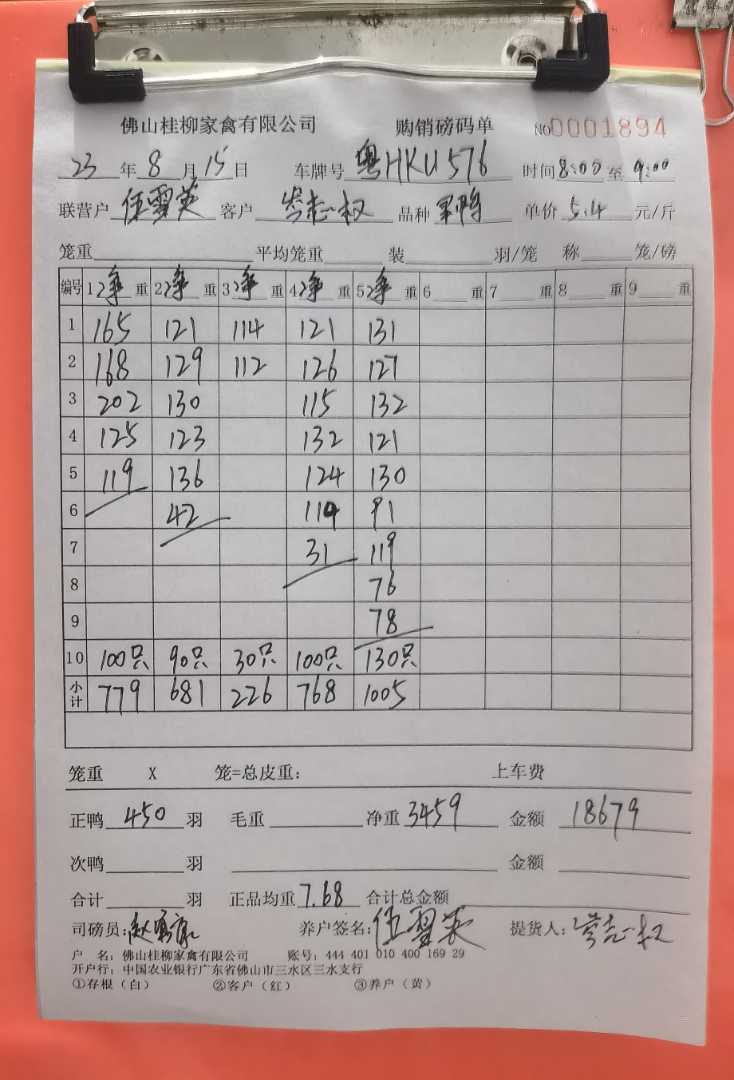 佛山桂柳家禽有限公司 购销磅码单 NO0001894
23 年 8 月 15 日 车牌号 粤HKU576 时间 8:00 至 9:00
联营户 伍雪英 客户 岑志权 品种 单价 5.4 元/斤
笼重 平均笼重 装 羽/笼 称 笼/磅
编号 1净重 2净重 3净重 4净重 5净重 6 重 7 重 8 重 9 重
1 165 121 114 121 131
2 168 129 112 126 127
3 202 130 115 132
4 125 123 132 121
5 119 136 124 130
6 42 114 91
7 31 119
8 76
9 78
10 100只 90只 30只 100只 130只
小计 779 681 226 768 1005
笼重 X 笼=总皮重: 上车费
正鸭 450 羽 毛重 净重 3459 金额 18679
次鸭 羽 金额
合计 羽 正品均重 7.68 合计总金额
司磅员: 养户签名: 伍雪英 提货人: 岑志权
户 名: 佛山桂柳家禽有限公司 账号: 444 401 010 400 169 29
开户行: 中国农业银行广东省佛山市三水区三水支行
①存根(白) ②客户(红) ③养户(黄)